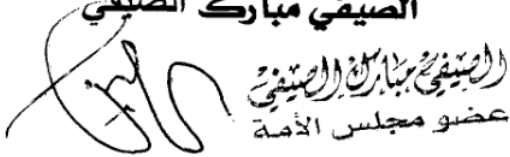 الصيفي مبارك الصيفي
الصيفي مبارك الصيفي
عضو مجلس الأمة